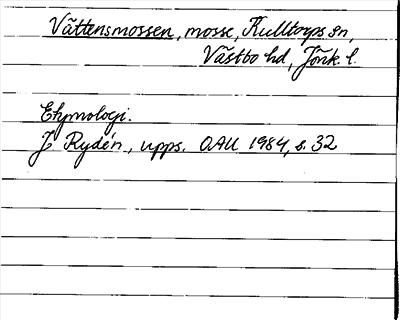 Vättensmossen, mosse, Kulltorps sn,
Västbo hd, Jönk. l.
Etymologi.
J Rydén, upps. OAU 1984, s. 32